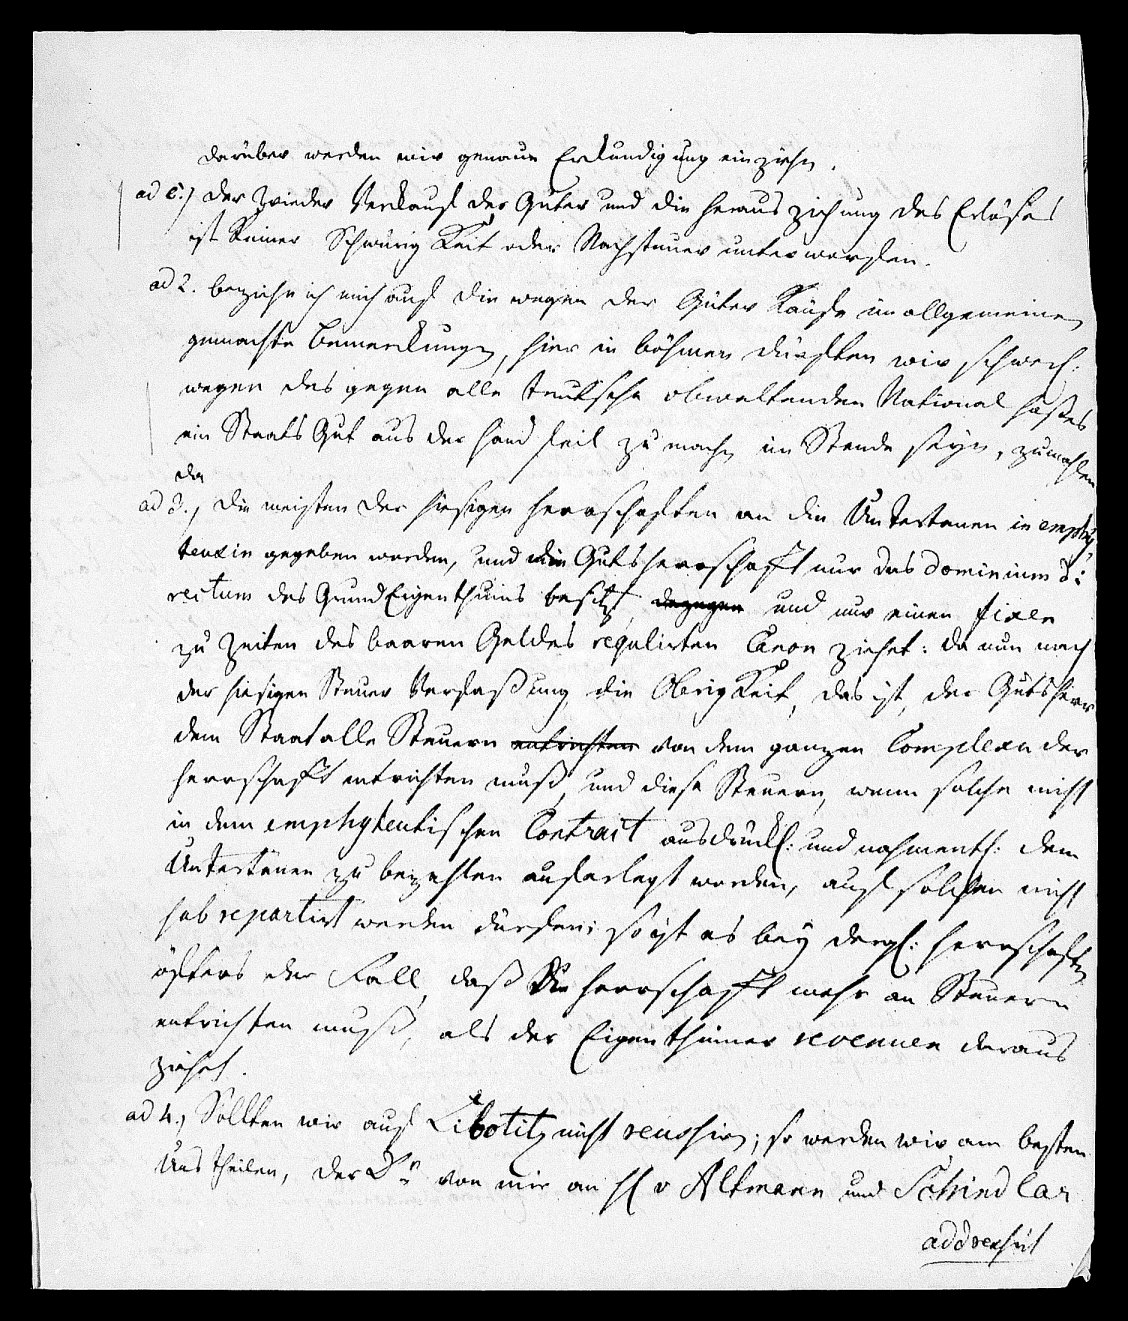 darüber werden wir genaue Erkundigung einziehn.
ad 1.) der Wieder Verkauf der Güter und die heraus ziehung des Erlöses
ist keiner Schwürig Keit oder Nachsteuer unterworfen.
ad 2. beziehe ich mich auf die wegen der Güter Käufe im allgemeinen
gemachte Bemerkungen, hier in böhmen dürften wir schwerl:
wegen des gegen alle teutsche obwaltenden National hasses
ein Staats Gut aus der hand feil zu machen im Stande seyn, zumahlen
da
ad 3., die meisten der hiesigen herrschaften an die Untertanen in emphy
teuxin gegeben worden, und die Gutsherrschaft nur das dominium di
rectum des GrundEigenthums besitzt, dagegen und nur einen fixen
zu Zeiten des baaren Geldes regulirten Canon ziehet: da nun nach
der hiesigen Steuer Verfaßung die ObrigKeit, das ist, der Gutsherr
dem Staat alle Steuern entrichten von dem ganzen Complexu der
herrschafft entrichten muß, und diese Steuern, wenn solche nicht
in dem emphyteutischen Contract ausdrückl: und nahmentl: dem
Untertanen zu bezahlen auferlegt worden, auf solchen nicht
subrepartirt werden dürfen: so ist es bey dergl: herrschaften
öfters der Fall, daß die herrschafft mehr an Steuern
entrichten muß, als der Eigenthümer revenuen daraus
ziehet.
ad 4., Sollten wir auf Libotitz nicht reussirn; so werden wir am besten
Uns theilen, der von mir an H v Altmann und Schindlar
addressirt